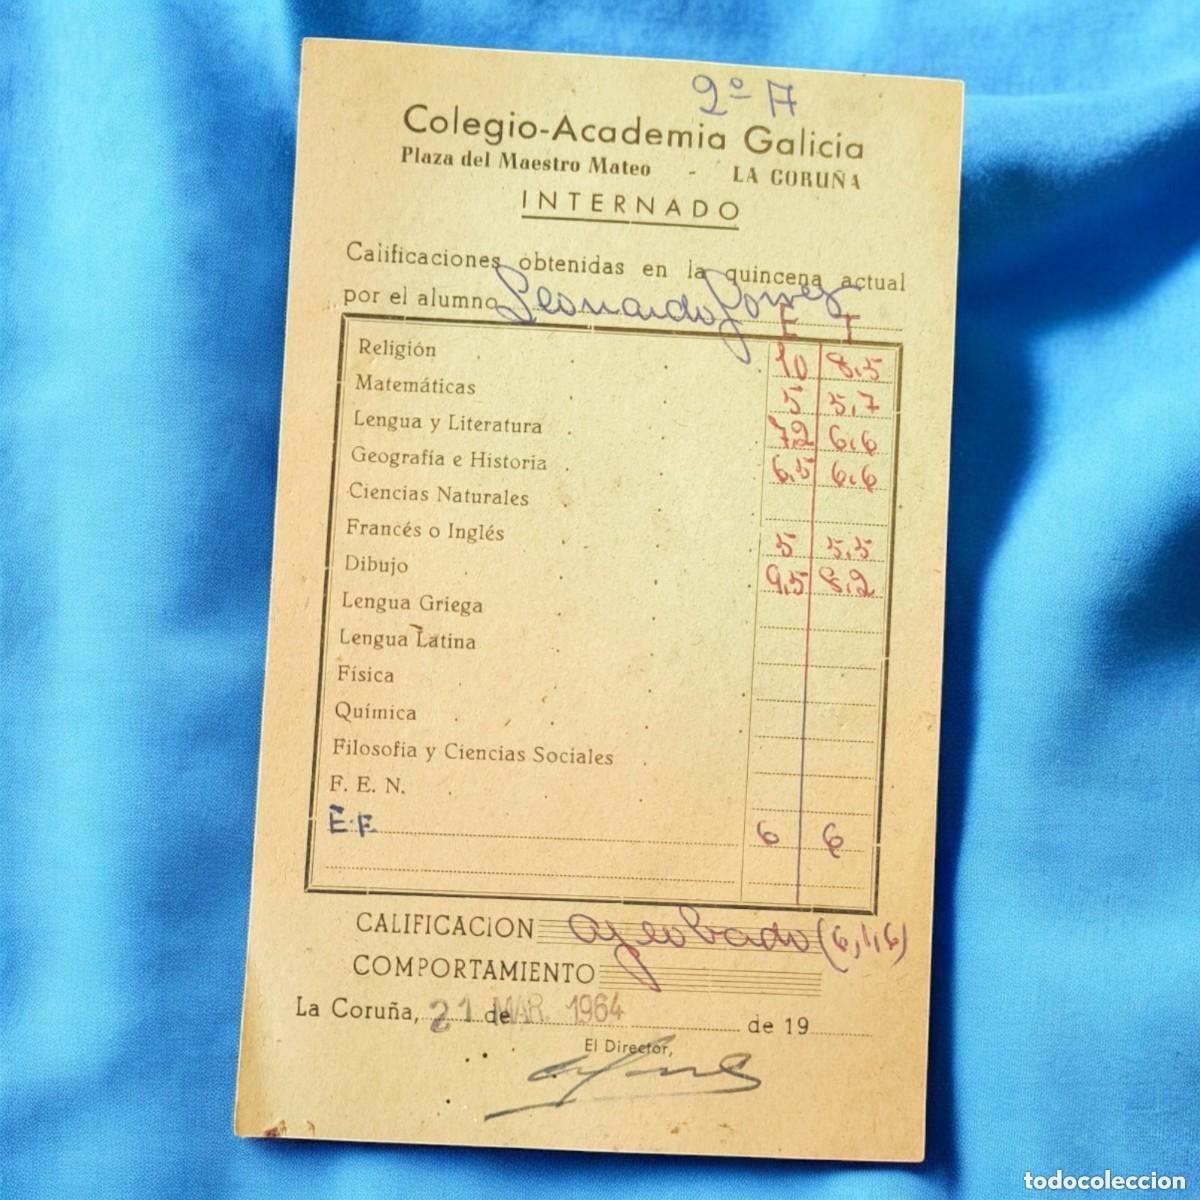 2º A
Colegio-Academia Galicia
Plaza del Maestro Mateo - LA CORUÑA
INTERNADO
Calificaciones obtenidas en la quincena actual
por el alumno Leonardo
E T
Religión 10 8,5
Matemáticas 5 5,7
Lengua y Literatura 7,2 6,6
Geografía e Historia 6,5 6,6
Ciencias Naturales
Francés o Inglés 5 5,5
Dibujo 9,5 8,2
Lengua Griega
Lengua Latina
Física
Química
Filosofía y Ciencias Sociales
F. E. N.
E.F. 6 6
CALIFICACION aprobado (6,1,6)
COMPORTAMIENTO
La Coruña, 21 de MAR. 1964 de 19
El Director,
todocoleccion